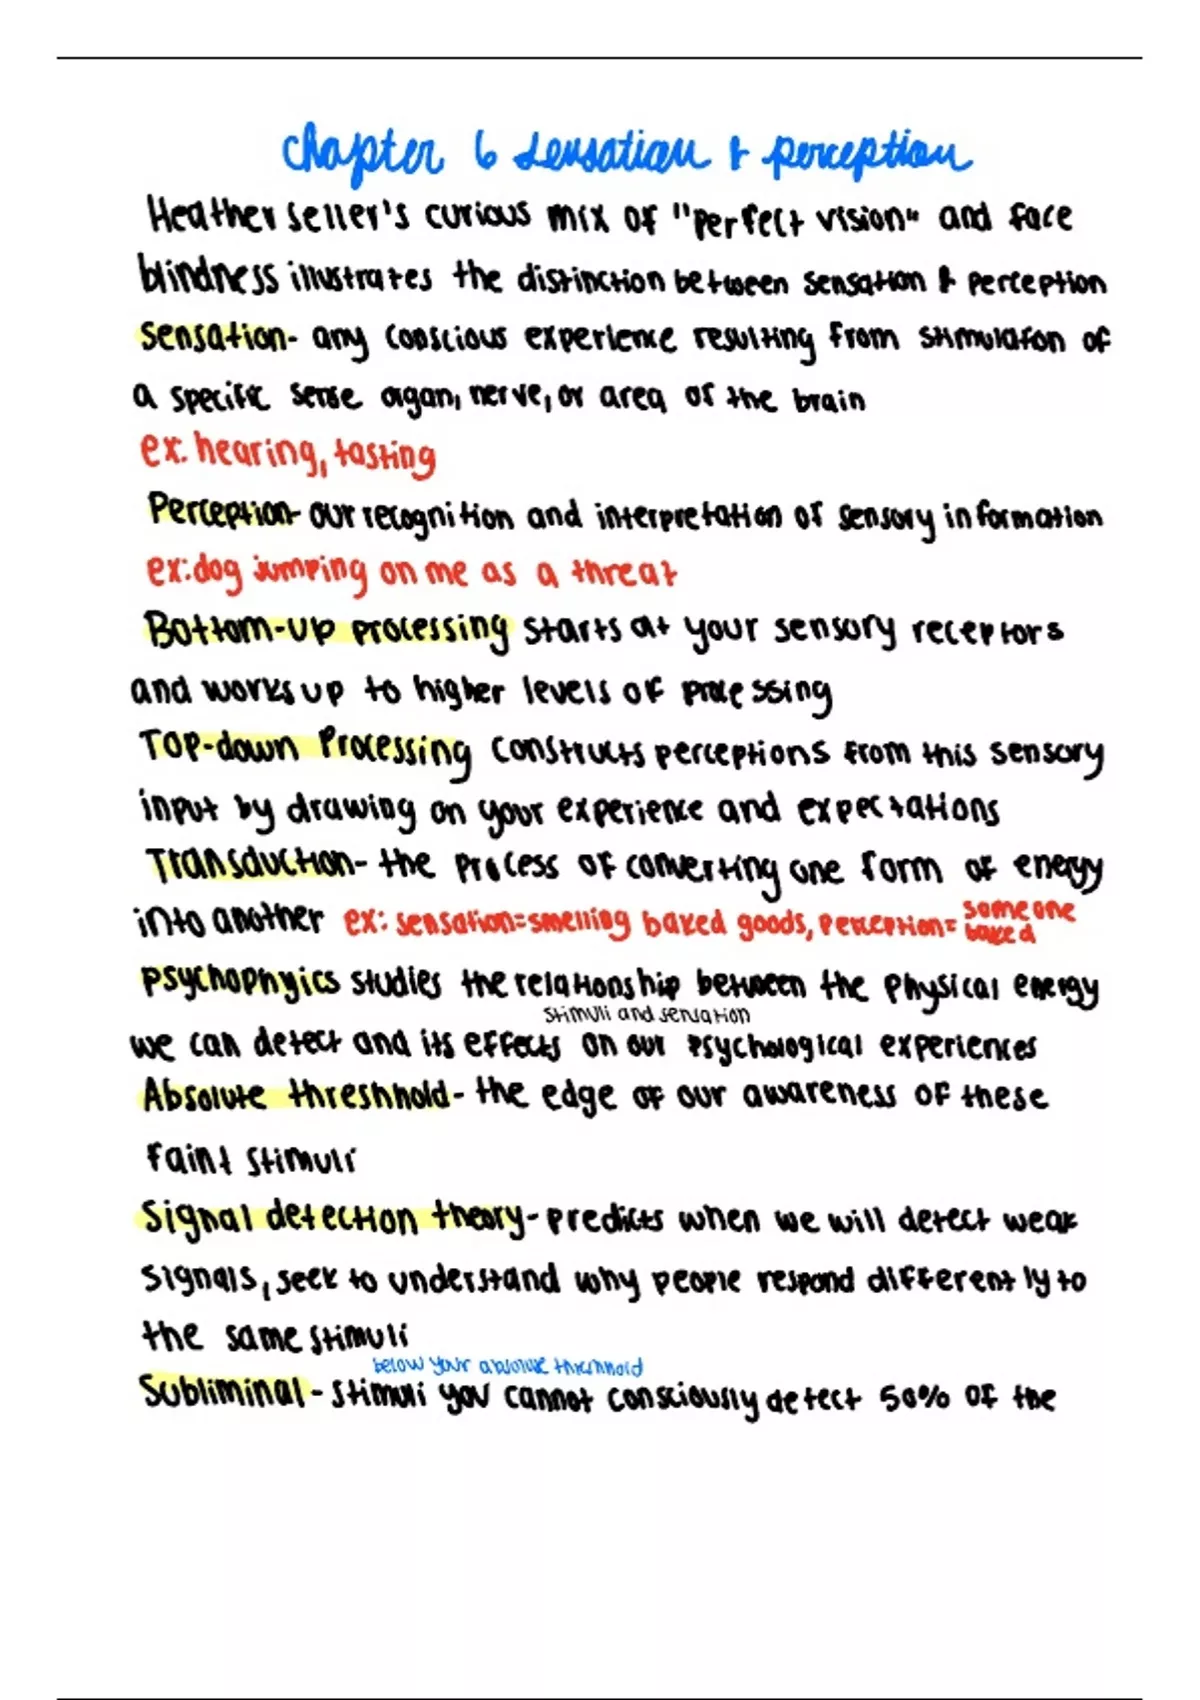 Chapter 6 sensation & perception
Heather Seller's curious mix of "perfect vision" and face
blindness illustrates the distinction between sensation & perception
Sensation- any conscious experience resulting from stimulation of
a specific sense organ, nerve, or area of the brain
ex: hearing, tasting
Perception- our recognition and interpretation of sensory information
ex: dog jumping on me as a threat
Bottom-up processing starts at your sensory receptors
and works up to higher levels of processing
Top-down Processing constructs perceptions from this sensory
input by drawing on your experience and expectations
Transduction- the process of converting one form of energy
into another ex: sensation=smelling baked goods, perception= someone baked
psychophyics studies the relationship between the physical energy
stimuli and sensation
we can detect and its effects on our psychological experiences
Absolute threshhold- the edge of our awareness of these
faint stimuli
Signal detection theory- predicts when we will detect weak
signals, seek to understand why people respond differently to
the same stimuli
below your absolute threshhold
Subliminal- stimuli you cannot consciously detect 50% of the